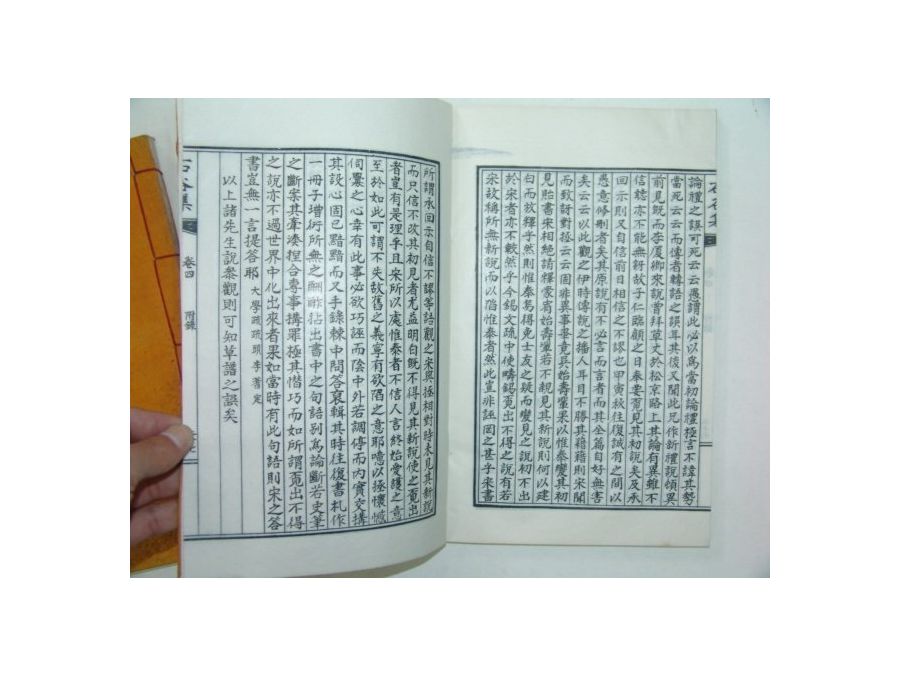 論禮之誤可死云云愚謂此必以爲當初論禮極言不諱其勢
當死云云而傳者轉語之誤耳其後又聞此兄作新禮說頓異
前見旣而李廈卿來說曾拜草丈於松京路上其論有異雖不
信聽亦不能無訝故子仁臨顧之日奉要覓見其說矣及承
回示則又自信前日相信之不謬也甲寅秋往復誠有之間以
愚意修刪者矣其原說有不必言而言者而其全篇自好無害
矣云云以此觀之伊時傳說之播人耳目不勝其藉藉則宋聞
而致訝對拯云云固非異事畢竟長怡壽壎果以惟泰變其初
見貽書宋相絶請釋蒙宥始壽壎若不親見其新說則何以建
白而故釋乎然則惟泰焉得免士友之疑而變見之說初不出
於宋者亦不皦然乎今錫文疏中使疇錫覓出不得之說有若
宋故稱所無新說而以陷惟泰者然此豈非誣罔之甚乎來書
所謂承回示自信不謬等語觀之宋與拯相對時未見其新說
而只信不改其初見者尤益明白旣不得見其新說使之覓出
者豈有是理乎且宋所以處惟泰者不信人言終始愛護之意
至於如此可謂不失故舊之義寧有欲陷之意耶噫以拯懷憾
伺釁之心幸有此事必欲巧誣而陰中外若調停而內實交搆
其設心固已黯黮而又手錄棘中問答裒輯其時往復書札作
一冊子增衍所無之酬酢拈出書中之句語別爲論斷若史筆
之斷案其牽湊捏合專事搆罪極其憯巧而如所謂覓出不得
之說亦不過世界中化出來者果如當時有此句語則宋之答
書豈無一言提答耶 大學疏疏頭李蓍定
以上諸先生說參觀則可知草譜之誤矣
石谷集 卷四 附錄